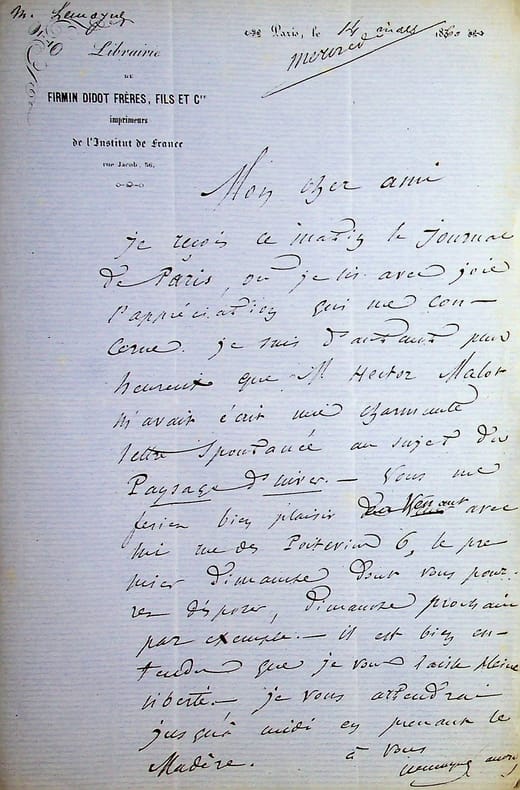 M. Lemoyne
Librairie
DE
FIRMIN DIDOT FRÈRES, FILS ET Cie
imprimeurs
de l'Institut de France
rue Jacob, 56.
Paris, le 14 mars 18
mercredi
Mon cher ami
je reçois ce matin le journal
de Paris, où je lis avec joie
l'appréciation qui me con-
cerne. je suis d'autant plus
heureux que M. Hector Malot
m'avait écrit une charmante
lettre spontanée au sujet du
Paysage d'hiver. — Vous me
feriez bien plaisir venant avec
mi rue des Poitevins 6, le pre
mier dimanche dont vous pour-
rez disposer, dimanche prochain
par exemple. — il est bien en-
tendu que je vous laisse pleine
liberté. — je vous attendrai
jusqu'à midi en prenant le
Madère. à vous